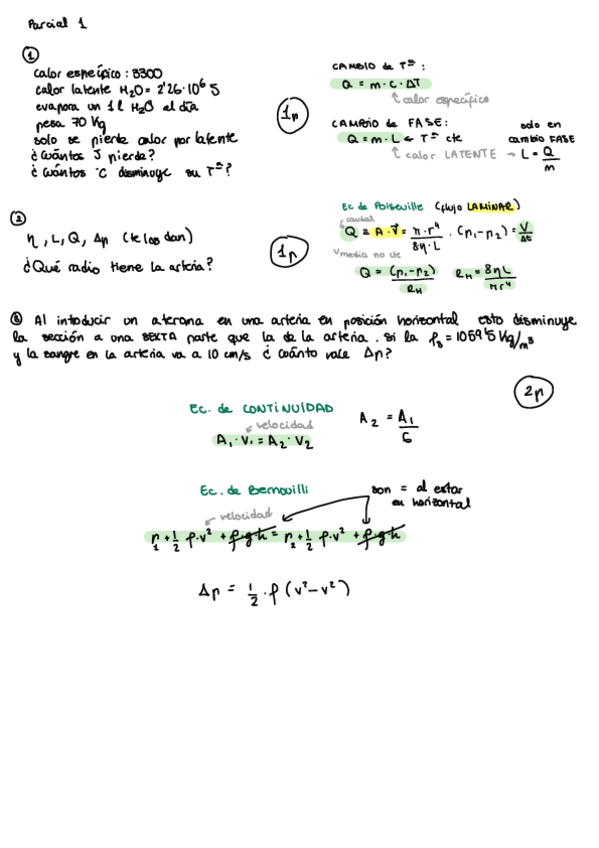 Parcial 1
①
calor específico: 3300
calor latente H2O = 2'26·10^6 J
evapora un 1 l H2O al día
pesa 70 Kg
solo se pierde calor por latente
¿Cuántos J pierde?
¿Cuántos °C disminuye su Tª?
1p
CAMBIO de Tª:
Q = m·c·ΔT
calor específico
CAMBIO de FASE:
Q = m·L ← Tª cte
calor LATENTE → L = Q/m
solo en
cambio FASE
②
η, L, Q, Δp (te los dan)
¿Qué radio tiene la arteria?
1p
Ec de Poiseuille (flujo LAMINAR)
caudal
Q = A·V̄ = π·r^4/8η·L · (p1-p2) = V/Δt
Vmedia no cte
Q = (p1-p2)/RH RH = 8ηL/πr^4
③ Al intoducir un ateroma en una arteria en posición horizontal esto disminuye
la sección a una SEXTA parte que la de la arteria. Si la ρs = 1059'5 Kg/m3
y la sangre en la arteria va a 10 cm/s ¿cuánto vale Δp?
2p
Ec. de CONTINUIDAD
velocidad
A1·V1 = A2·V2
A2 = A1/6
Ec. de Bernouilli
son = al estar
en horizontal
velocidad
p1 + 1/2 ρ·v² + ρ·g·h = p2 + 1/2 ρ·v² + ρ·g·h
Δp = 1/2·ρ(v²-v²)